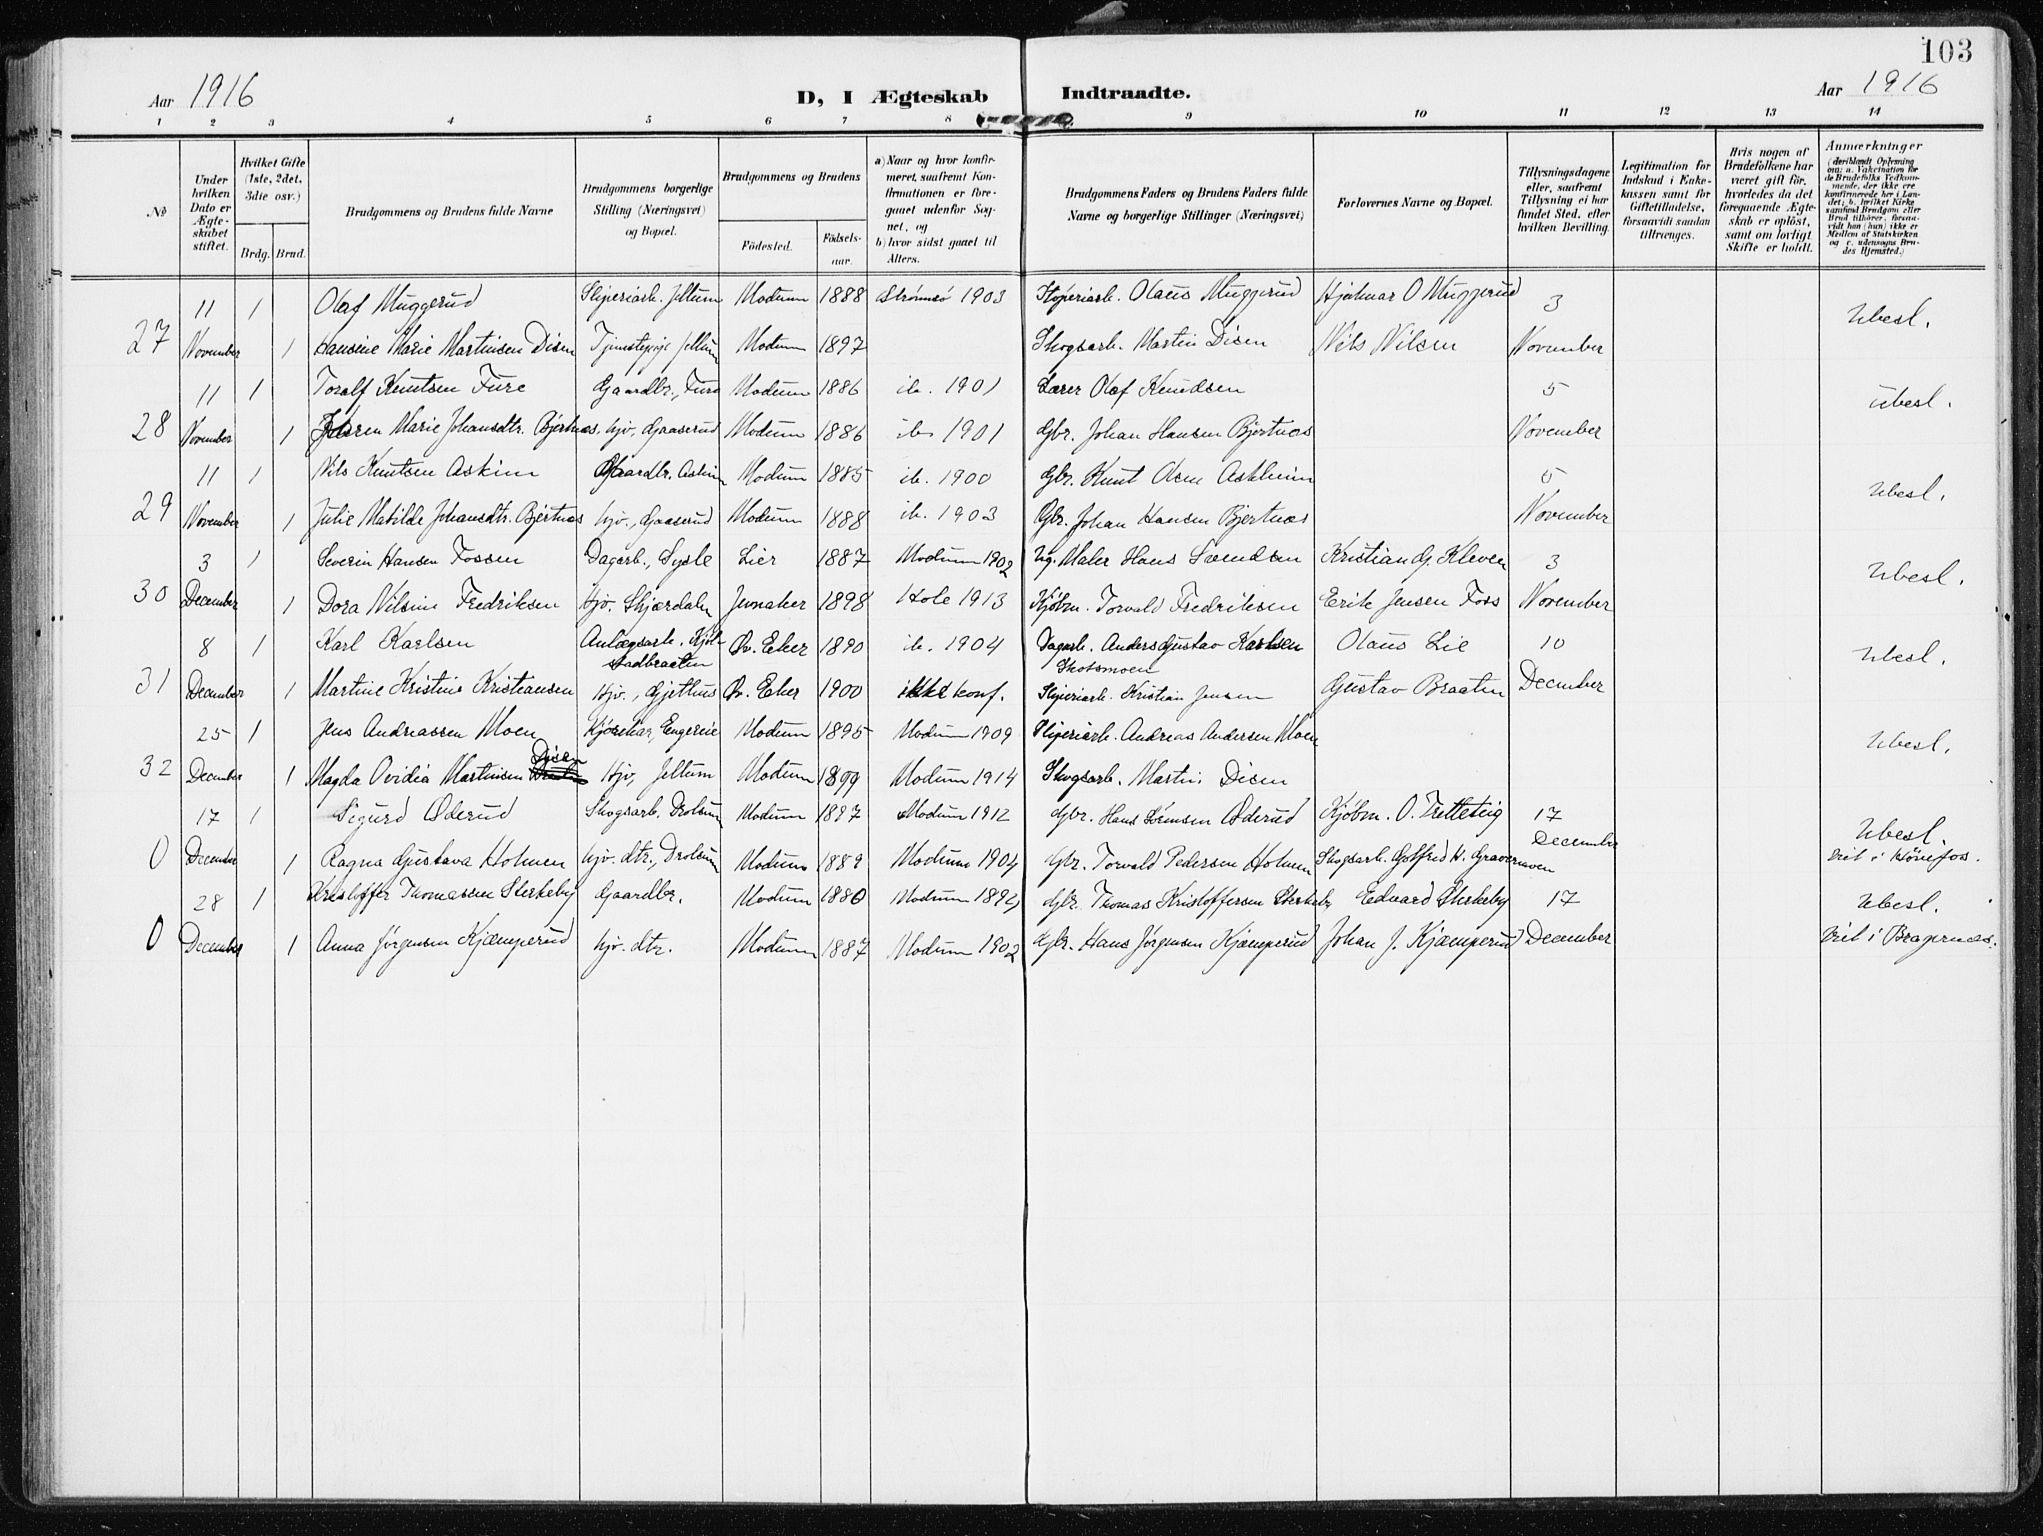 103
Aar 1916 D, I Ægteskab Indtraadte. Aar 1916
1 2 3 4 5 6 7 8 9 10 11 12 13 14
№ Under hvilken Dato er Ægteskabet stiftet. Hvilket Gifte (1ste, 2det, 3die osv.) Brdg. Brud. Brudgommens og Brudens fulde Navne Brudgommens borgerlige Stilling (Næringsvei) og Bopæl. Brudgommens og Brudens Fødested. Fødselsaar. a) Naar og hvor konfirmeret, saafremt Konfirmationen er foregaaet udenfor Sognet, og b) hvor sidst gaaet til Alters. Brudgommens Faders og Brudens Faders fulde Navne og borgerlige Stillinger (Næringsvei) Forlovernes Navne og Bopæl. Tillysningsdagene eller, saafremt Tillysning ei har fundet Sted, efter hvilken Bevilling. Legitimation for Indskud i Enkekassen samt for Giftetilladelse, forsaavidt saadan tiltrænges. Hvis nogen af Brudefolkene har været gift før, hvorledes da det foregaaende Ægteskab er opløst, samt om lovligt Skifte er holdt. Anmærkninger (deriblandt Oplysning om: a. Vakcination for de Brudefolks Vedkommende, der ikke ere konfirmerede her i Landet; b. hvilket Kirkesamfund Brudgom eller Brud tilhører, forsaavidt han (hun) ikke er Medlem af Statskirken og c. udensogns Brudes Hjemsted.)
11 1 Olaf Muggerud Sliperiarb. Jellum Modum 1888 Strømsø 1903 Sliperiarb. Olaus Muggerud Hjalmar O Muggerud 3 Ubesl.
27 November 1 Hansine Marie Martinsen Disen Tjenestepige Jellum Modum 1897 Skogsarb. Martin Disen Nils Nilsen November
11 1 Toralf Knutsen Fure Gaardbr., Fure Modum 1886 ib. 1901 Lærer Olaf Knudsen 5 Ubesl.
28 November 1 Karen Marie Johansdtr. Bjertnæs hjv., Gaaserud Modum 1886 ib. 1901 Gbr. Johan Hansen Bjertnæs November
11 1 Nils Knutsen Askim Gaardbr. Askim Modum 1885 ib. 1900 Gbr. Knut Olsen Askheim 5 Ubesl.
29 November 1 Julie Matilde Johansdtr. Bjertnæs hjv., Gaaserud Modum 1888 ib. 1903 Gbr. Johan Hansen Bjertnæs November
3 1 Severin Hansen Fossen Dagarb., Sysle Lier 1887 Modum 1902 Maler Hans Svendsen Kristian G. Kleven 3 Ubesl.
30 December 1 Dora Nilsine Fredriksen hjv. Skjærdalen Jevnaker 1898 Hole 1913 Kjøbm. Torvald Fredriksen Erik Jensen Foss November
8 1 Karl Karlsen Anlægsarb. Kjølstadbraaten Øv. Eker 1890 ib. 1904 Dagarb. Anders Gustav Karlsen Skotsmoen Olaus Lie 10 Ubesl.
31 December 1 Martine Kristine Kristiansen hjv., Gjethus Øv. Eker 1900 ikke konf. Sliperiarb. Kristian Jensen Gustav Braaten December
25 1 Jens Andreassen Moen Kjørekar, Engerene Modum 1895 Modum 1909 Sliperiarb. Andreas Andersen Moen Ubesl.
32 December 1 Magda Ovidia Martinsen Disen hjv., Jellum Modum 1899 Modum 1914 Skogsarb. Martin Disen
17 1 Sigurd Øderud Skogsarb. Drolsum Modum 1897 Modum 1912 Gbr. Hans Sørensen Øderud Kjøbm. O. Tretteteig 17 Ubesl.
0 December 1 Ragna Gustava Holmen hjv. dtr., Drolsum Modum 1889 Modum 1904 Gbr. Torvald Pedersen Holmen Skogsarb. Gotfred H. Gravermoen December Viet i Hønefos.
28 1 Kristoffer Thomassen Sterkeby Gaardbr. Modum 1880 Modum 1894 Gbr. Thomas Kristoffersen Sterkeby Edvard Sterkeby 17 Ubesl.
0 December 1 Anna Jørgensen Kjæmperud hjv. dtr. Modum 1887 Modum 1902 Gbr. Hans Jørgensen Kjæmperud Johan J. Kjæmperud December Viet i Bragernæs.